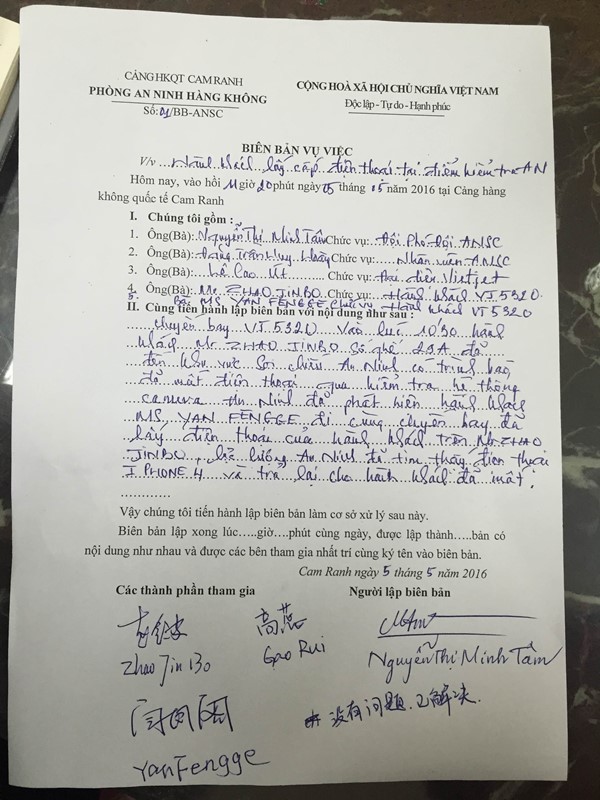 CẢNG HKQT CAM RANH
PHÒNG AN NINH HÀNG KHÔNG
Số: 01/BB-ANSC
CỘNG HOÀ XÃ HỘI CHỦ NGHĨA VIỆT NAM
Độc lập - Tự do - Hạnh phúc
BIÊN BẢN VỤ VIỆC
V/v hành khách lấy cắp điện thoại tại điểm kiểm tra AN
Hôm nay, vào hồi 11 giờ 20 phút ngày 05 tháng 05 năm 2016 tại Cảng hàng
không quốc tế Cam Ranh
I. Chúng tôi gồm :
1. Ông(Bà): Nguyễn Thị Minh Tâm Chức vụ: Đội Phó Đội ANSC
2. Ông(Bà): Trần Huy Chức vụ: Nhân viên ANSC
3. Ông(Bà): Cao Chức vụ: Đại diện Vietjet
4. Ông(Bà): Mr. ZHAO JINBO Chức vụ: Hành khách VJ 5320
5. Bà: MS YAN FENGGE Chức vụ Hành khách VJ 5320
II. Cùng tiến hành lập biên bản với nội dung như sau :
chuyến bay VJ 5320 Vào lúc 10h30 hành
khách Mr. ZHAO JINBO Số ghế 23A đã
đến khu vực soi chiếu An Ninh có trình báo
đã mất điện thoại qua kiểm tra hệ thống
camera An Ninh đã phát hiện hành khách
MS, YAN FENGGE đi cùng chuyến bay đã
lấy điện thoại của hành khách trên Mr. ZHAO
JINBO, lực lượng An Ninh đã tìm thấy điện thoại
IPHONE 4 và trả lại cho hành khách đã mất.
............
Vậy chúng tôi tiến hành lập biên bản làm cơ sở xử lý sau này.
Biên bản lập xong lúc.....giờ....phút cùng ngày, được lập thành.....bản có
nội dung như nhau và được các bên tham gia nhất trí cùng ký tên vào biên bản.
Cam Ranh ngày 5 tháng 5 năm 2016
Các thành phần tham gia
Người lập biên bản
高蕊
Zhao Jin Bo
Gao Rui
Nguyễn Thị Minh Tâm
没有问题.已解决.
Yan Fengge